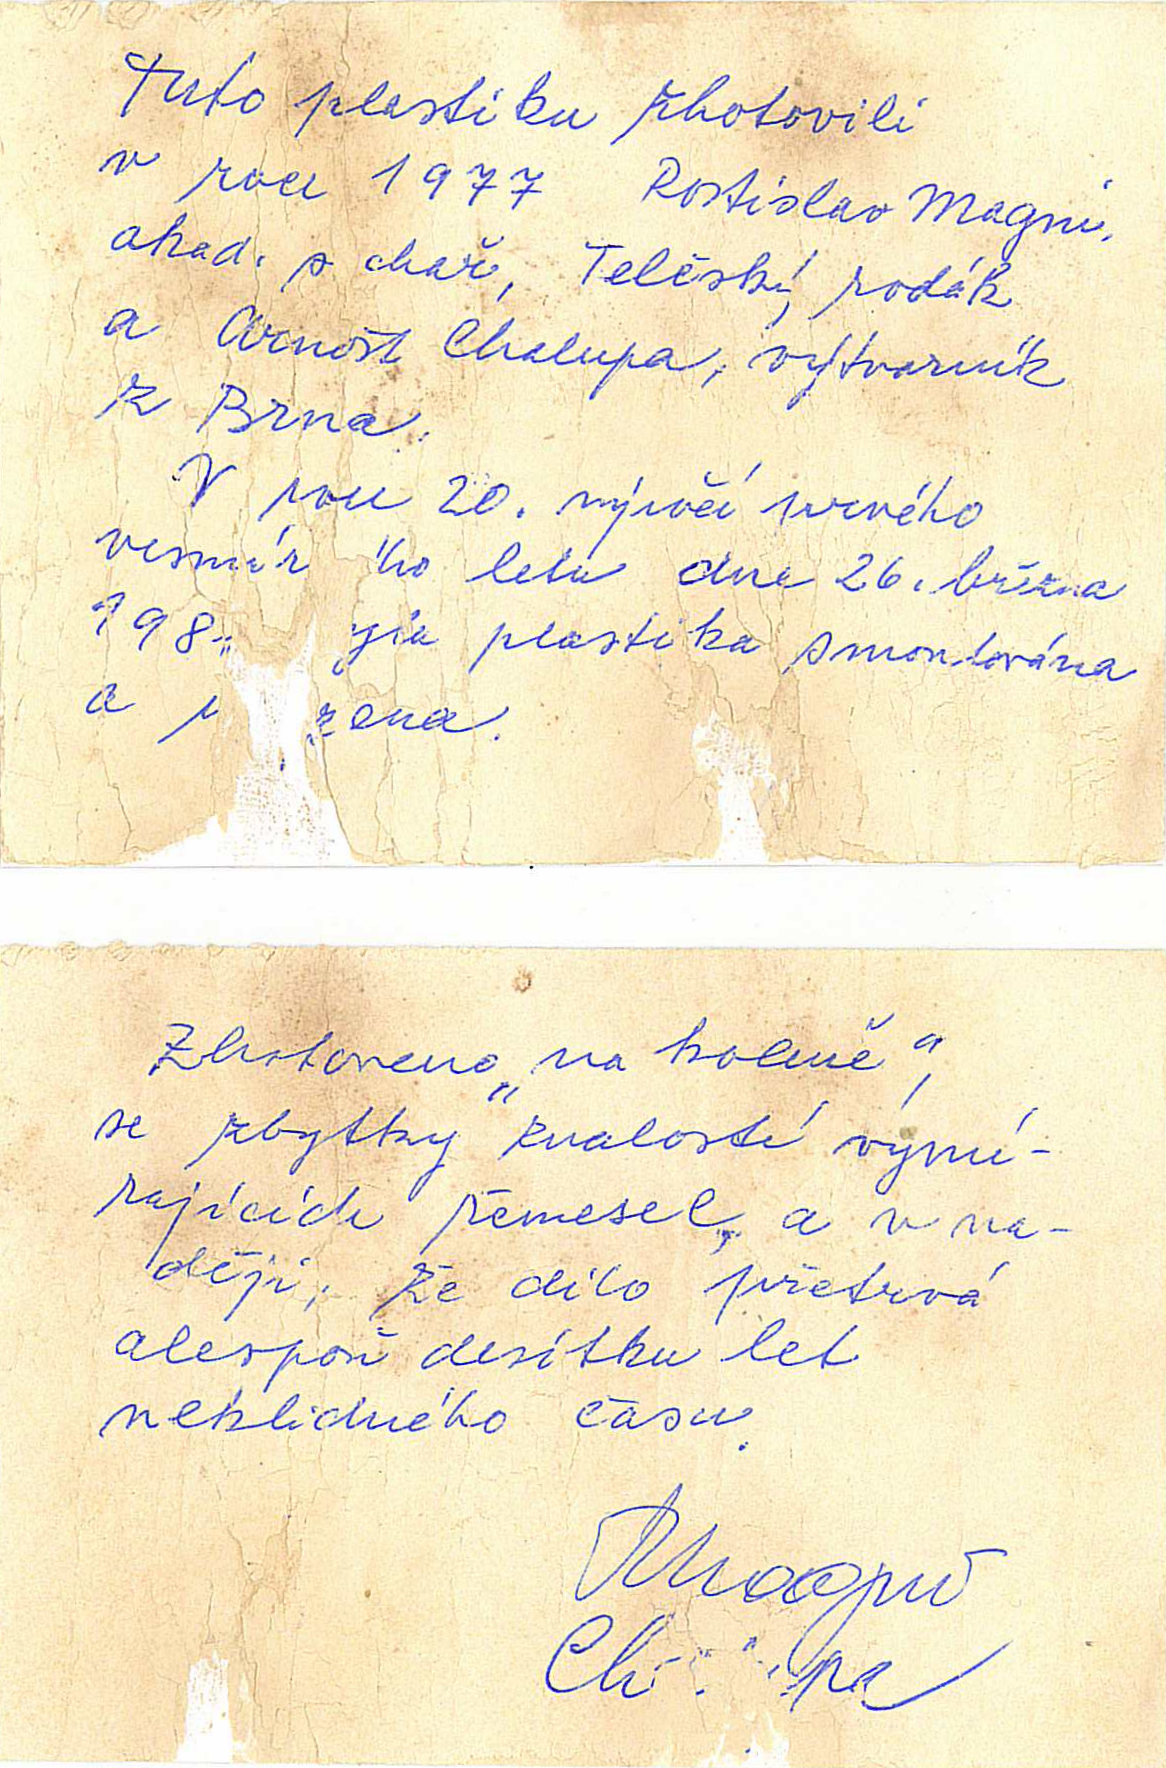 Tuto plastiku zhotovili
v roce 1977 Rostislav Magni,
akad. sochař, Telčský rodák
a Arnošt Chalupa, výtvarník
z Brna.
V roce 20. výročí prvého
letu dne 26. března
plastika smontována
a
Zhotoveno „na koleně",
se zbytky znalostí vymí-
rajících řemesel, a v na-
ději, že dílo přetrvá
alespoň desítku let
neklidného času.
Magni